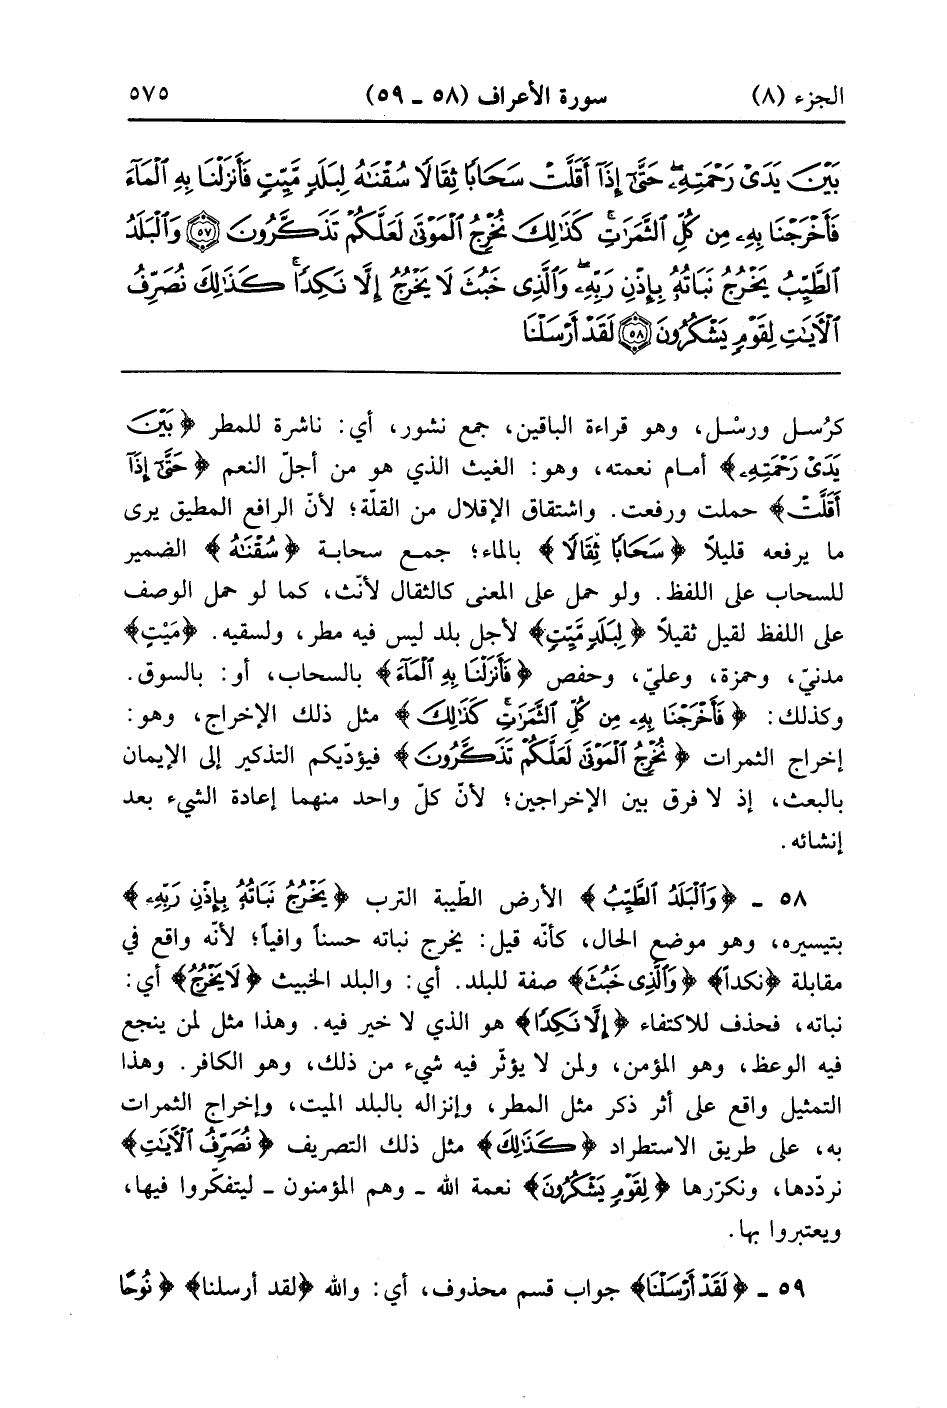 الجزء (٨) سورة الأعراف (٥٨ ـ ٥٩) ٥٧٥
بَيْنَ يَدَىْ رَحْمَتِهِۦۖ حَتَّىٰٓ إِذَآ أَقَلَّتْ سَحَابًا ثِقَالًا سُقْنَٰهُ لِبَلَدٍ مَّيِّتٍ فَأَنزَلْنَا بِهِ ٱلْمَآءَ
فَأَخْرَجْنَا بِهِۦ مِن كُلِّ ٱلثَّمَرَٰتِۚ كَذَٰلِكَ نُخْرِجُ ٱلْمَوْتَىٰ لَعَلَّكُمْ تَذَكَّرُونَ ٥٧ وَٱلْبَلَدُ
ٱلطَّيِّبُ يَخْرُجُ نَبَاتُهُۥ بِإِذْنِ رَبِّهِۦۖ وَٱلَّذِى خَبُثَ لَا يَخْرُجُ إِلَّا نَكِدًاۚ كَذَٰلِكَ نُصَرِّفُ
ٱلْءَايَٰتِ لِقَوْمٍ يَشْكُرُونَ ٥٨ لَقَدْ أَرْسَلْنَا
كرُسل ورسْل، وهو قراءة الباقين، جمع نشور، أي: ناشرة للمطر ﴿بَيْنَ
يَدَىْ رَحْمَتِهِۦ﴾ أمام نعمته، وهو: الغيث الذي هو من أجلّ النعم ﴿حَتَّىٰٓ إِذَآ
أَقَلَّتْ﴾ حملت ورفعت. واشتقاق الإقلال من القلّة؛ لأنّ الرافع المطيق يرى
ما يرفعه قليلاً ﴿سَحَابًا ثِقَالًا﴾ بالماء؛ جمع سحابة ﴿سُقْنَٰهُ﴾ الضمير
للسحاب على اللفظ. ولو حمل على المعنى كالثقال لأنّث، كما لو حمل الوصف
على اللفظ لقيل ثقيلاً ﴿لِبَلَدٍ مَّيِّتٍ﴾ لأجل بلد ليس فيه مطر، ولسقيه. ﴿مَيْتٍ﴾
مدنيّ، وحمزة، وعليّ، وحفص ﴿فَأَنزَلْنَا بِهِ ٱلْمَآءَ﴾ بالسحاب، أو: بالسوق.
وكذلك: ﴿فَأَخْرَجْنَا بِهِۦ مِن كُلِّ ٱلثَّمَرَٰتِۚ كَذَٰلِكَ﴾ مثل ذلك الإخراج، وهو:
إخراج الثمرات ﴿نُخْرِجُ ٱلْمَوْتَىٰ لَعَلَّكُمْ تَذَكَّرُونَ﴾ فيؤدّيكم التذكير إلى الإيمان
بالبعث، إذ لا فرق بين الإخراجين؛ لأنّ كلّ واحد منهما إعادة الشيء بعد
إنشائه.
٥٨ ـ ﴿وَٱلْبَلَدُ ٱلطَّيِّبُ﴾ الأرض الطّيبة الترب ﴿يَخْرُجُ نَبَاتُهُۥ بِإِذْنِ رَبِّهِۦ﴾
بتيسيره، وهو موضع الحال، كأنّه قيل: يخرج نباته حسناً وافياً؛ لأنّه واقع في
مقابلة ﴿نكداً﴾ ﴿وَٱلَّذِى خَبُثَ﴾ صفة للبلد. أي: والبلد الخبيث ﴿لَا يَخْرُجُ﴾ أي:
نباته، فحذف للاكتفاء ﴿إِلَّا نَكِدًا﴾ هو الذي لا خير فيه. وهذا مثل لمن ينجع
فيه الوعظ، وهو المؤمن، ولمن لا يؤثّر فيه شيء من ذلك، وهو الكافر. وهذا
التمثيل واقع على أثر ذكر مثل المطر، وإنزاله بالبلد الميت، وإخراج الثمرات
به، على طريق الاستطراد ﴿كَذَٰلِكَ﴾ مثل ذلك التصريف ﴿نُصَرِّفُ ٱلْءَايَٰتِ﴾
نردّدها، ونكرّرها ﴿لِقَوْمٍ يَشْكُرُونَ﴾ نعمة الله ـ وهم المؤمنون ـ ليتفكّروا فيها،
ويعتبروا بها.
٥٩ ـ ﴿لَقَدْ أَرْسَلْنَا﴾ جواب قسم محذوف، أي: والله ﴿لقد أرسلنا﴾ ﴿نُوحًا